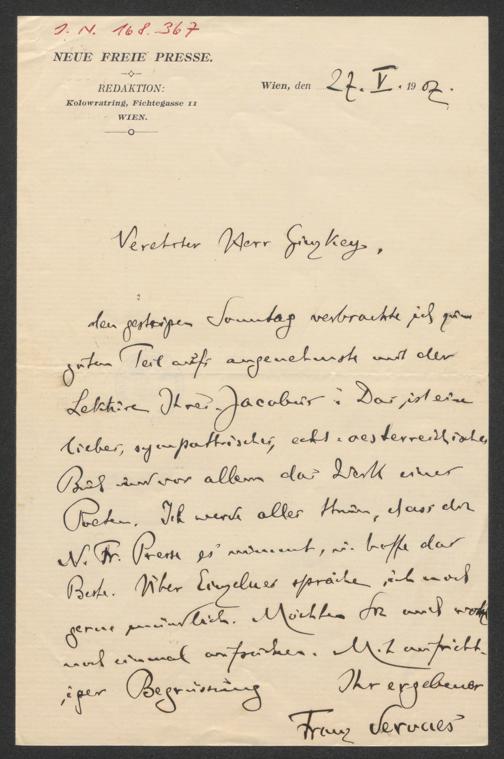 J. N. 168.367
NEUE FREIE PRESSE.
REDAKTION:
Kolowratring, Fichtegasse 11
WIEN.
Wien, den 27. V. 1907.
Verehrter Herr Ginzkey,
den gestrigen Sonntag verbrachte ich zum
guten Teil aufs angenehmste mit der
Lektüre Ihres „Jacobus": Das ist ein
lieber, sympathischer, echt-oesterreichisches
Buch und vor allem das Werk eines
Poeten. Ich werde alles thun, dass die
N. Fr. Presse es nimmt, u. hoffe das
Beste. Über Einzelnes spräche ich noch
gerne mündlich. Möchten Sie mich wohl
noch einmal aufsuchen. Mit aufricht-
iger Begrüssung Ihr ergebener
Franz Servaes